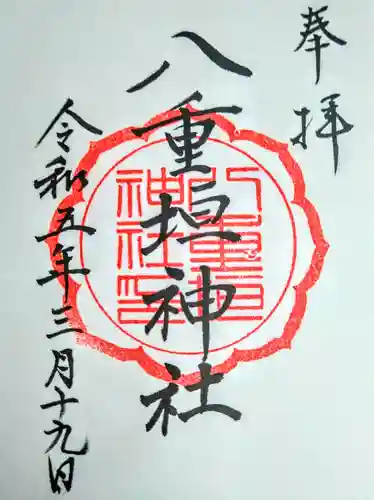 奉拝
八重垣神社
令和五年三月十九日
八重垣
神社印